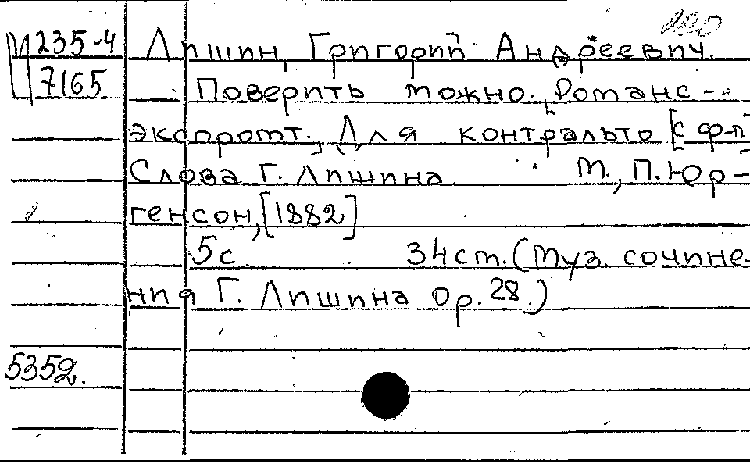 220
М 235-4 Лишин, Григорий Андреевич.
7165 Поверить можно. Романс-
экспромт. Для контральто [с ф-п]
Слова Г. Лишина М., П. Юр-
генсон, [1882]
5 с 34 см. (Муз. сочине-
ния Г. Лишина op. 28.)
5352.